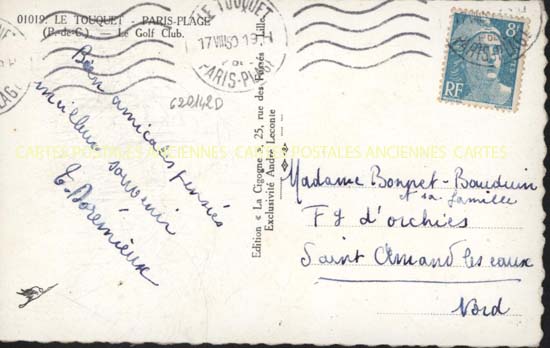 01019. LE TOUQUET - PARIS-PLAGE
(P.-de-C.) — Le Golf Club.
LE TOUQUET
PARIS-PLAGE
8F
RF
620/42D
Bien amicales pensées
meilleur souvenir
Edition « La Cigogne », 25, rue des Fossés - Lille
Exclusivité André Leconte
CARTES POSTALES ANCIENNES CARTES POSTALES ANCIENNES CARTES
Madame Bonpet-Bauduin
et sa famille
Fg d'orchies
Saint Amand les eaux
Nord